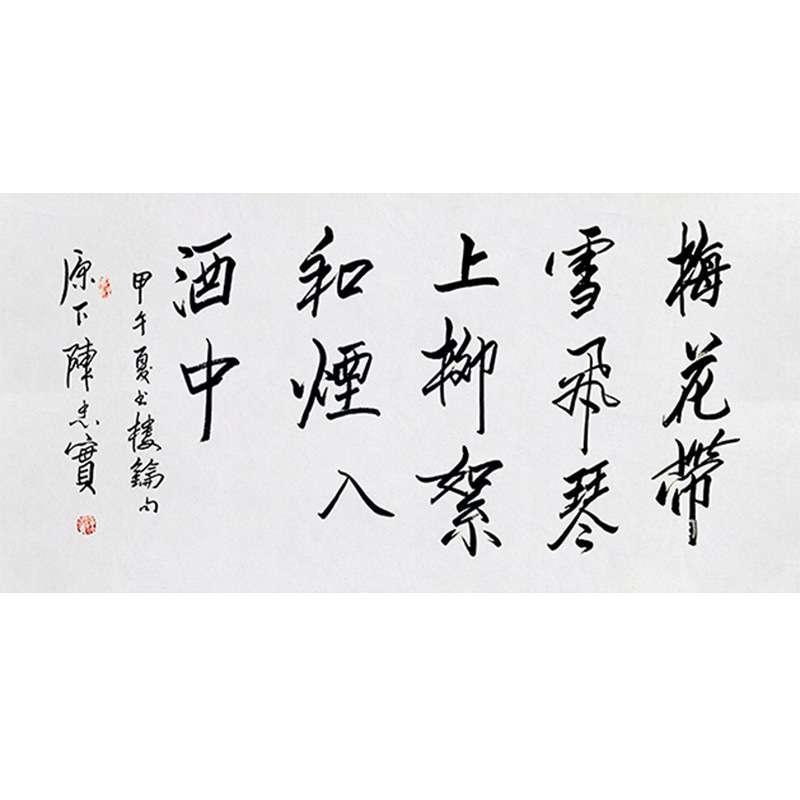 梅花帶
雪飛琴
上柳絮
和煙入
酒中
甲午夏書樓鑰句
原下陳忠實